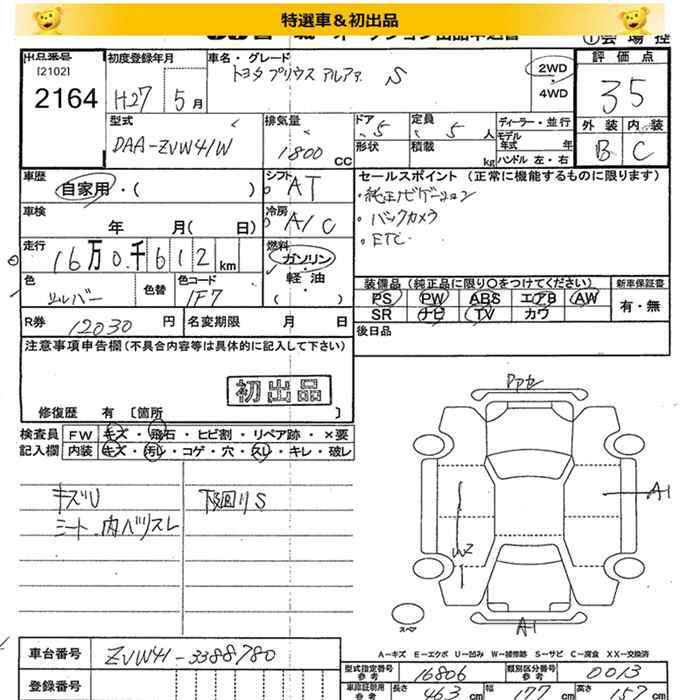 特選車＆初出品
出品番号
[2102]
2164
初度登録年月
H27 5月
車名・グレード
トヨタ プリウス アルファ S
2WD
・
4WD
評価点
3.5
外装 内装
B C
型式
DAA-ZVW41W
排気量
1800 cc
ドア 5
形状
定員 5 人
積載 kg
ディーラー・並行
モデル年式 年
ハンドル 左・右
車歴
自家用・( )
シフト AT
車検
年 月( 日)
冷房 A/C
走行
16万0千612km
燃料
ガソリン
・
軽油
( )
色
シルバー
色替
色コード
1F7
セールスポイント (正常に機能するものに限ります)
・純正ナビゲーション
・バックカメラ
・ETC
装備品 (純正品に限り〇をつけてください)
PS PW ABS エアB AW
SR ナビ TV カワ
新車保証書
有・無
後日品
R券 12030 円
名変期限 月 日
注意事項申告欄 (不具合内容等は具体的に記入して下さい)
初出品
修復歴 有 〔箇所 〕
検査員 FW キズ・飛石・ヒビ割・リペア跡・×要
記入欄 内装 キズ・汚レ・コゲ・穴・スレ・キレ・破レ
キズU
シート・内ハリスレ
下廻りS
PPセ
A1
W2
A1
スペア
A－キズ E－エクボ U－凹み W－補修跡 S－サビ C－腐食 XX－交換済
車台番号 ZVW41-3388780
登録番号
型式指定番号 参考 16806
類別区分番号 参考 0013
車庫証明用 参考 長さ 463 cm 幅 177 cm 高さ 157 cm